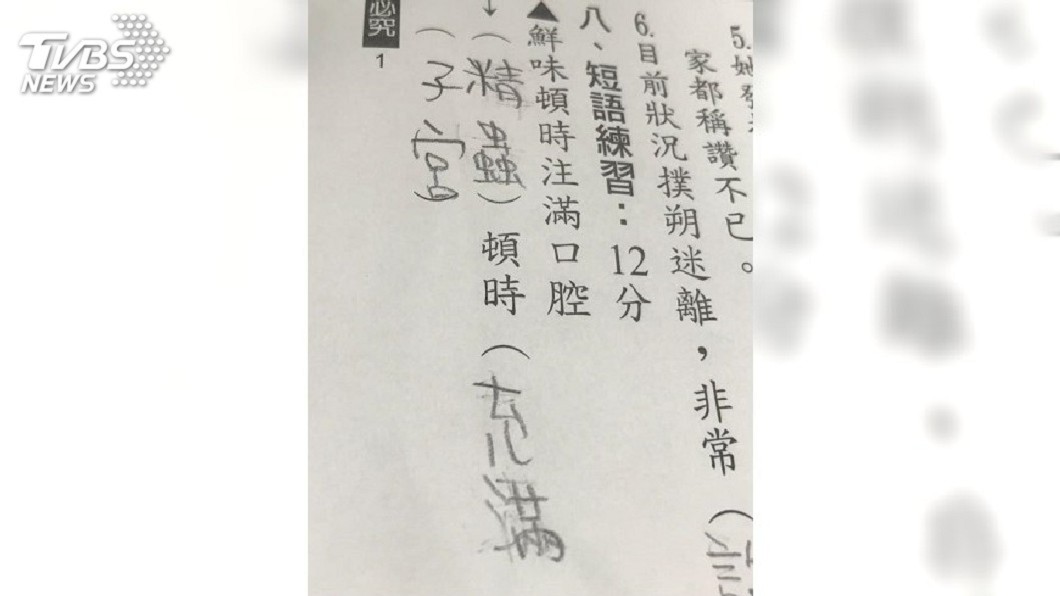 TVBS
NEWS
5.她發
家都稱讚不已。
6.目前狀況撲朔迷離，非常（
八、短語練習：12分
▲鮮味頓時注滿口腔
↓（精蟲）頓時（充滿
（子宮）
必究
1